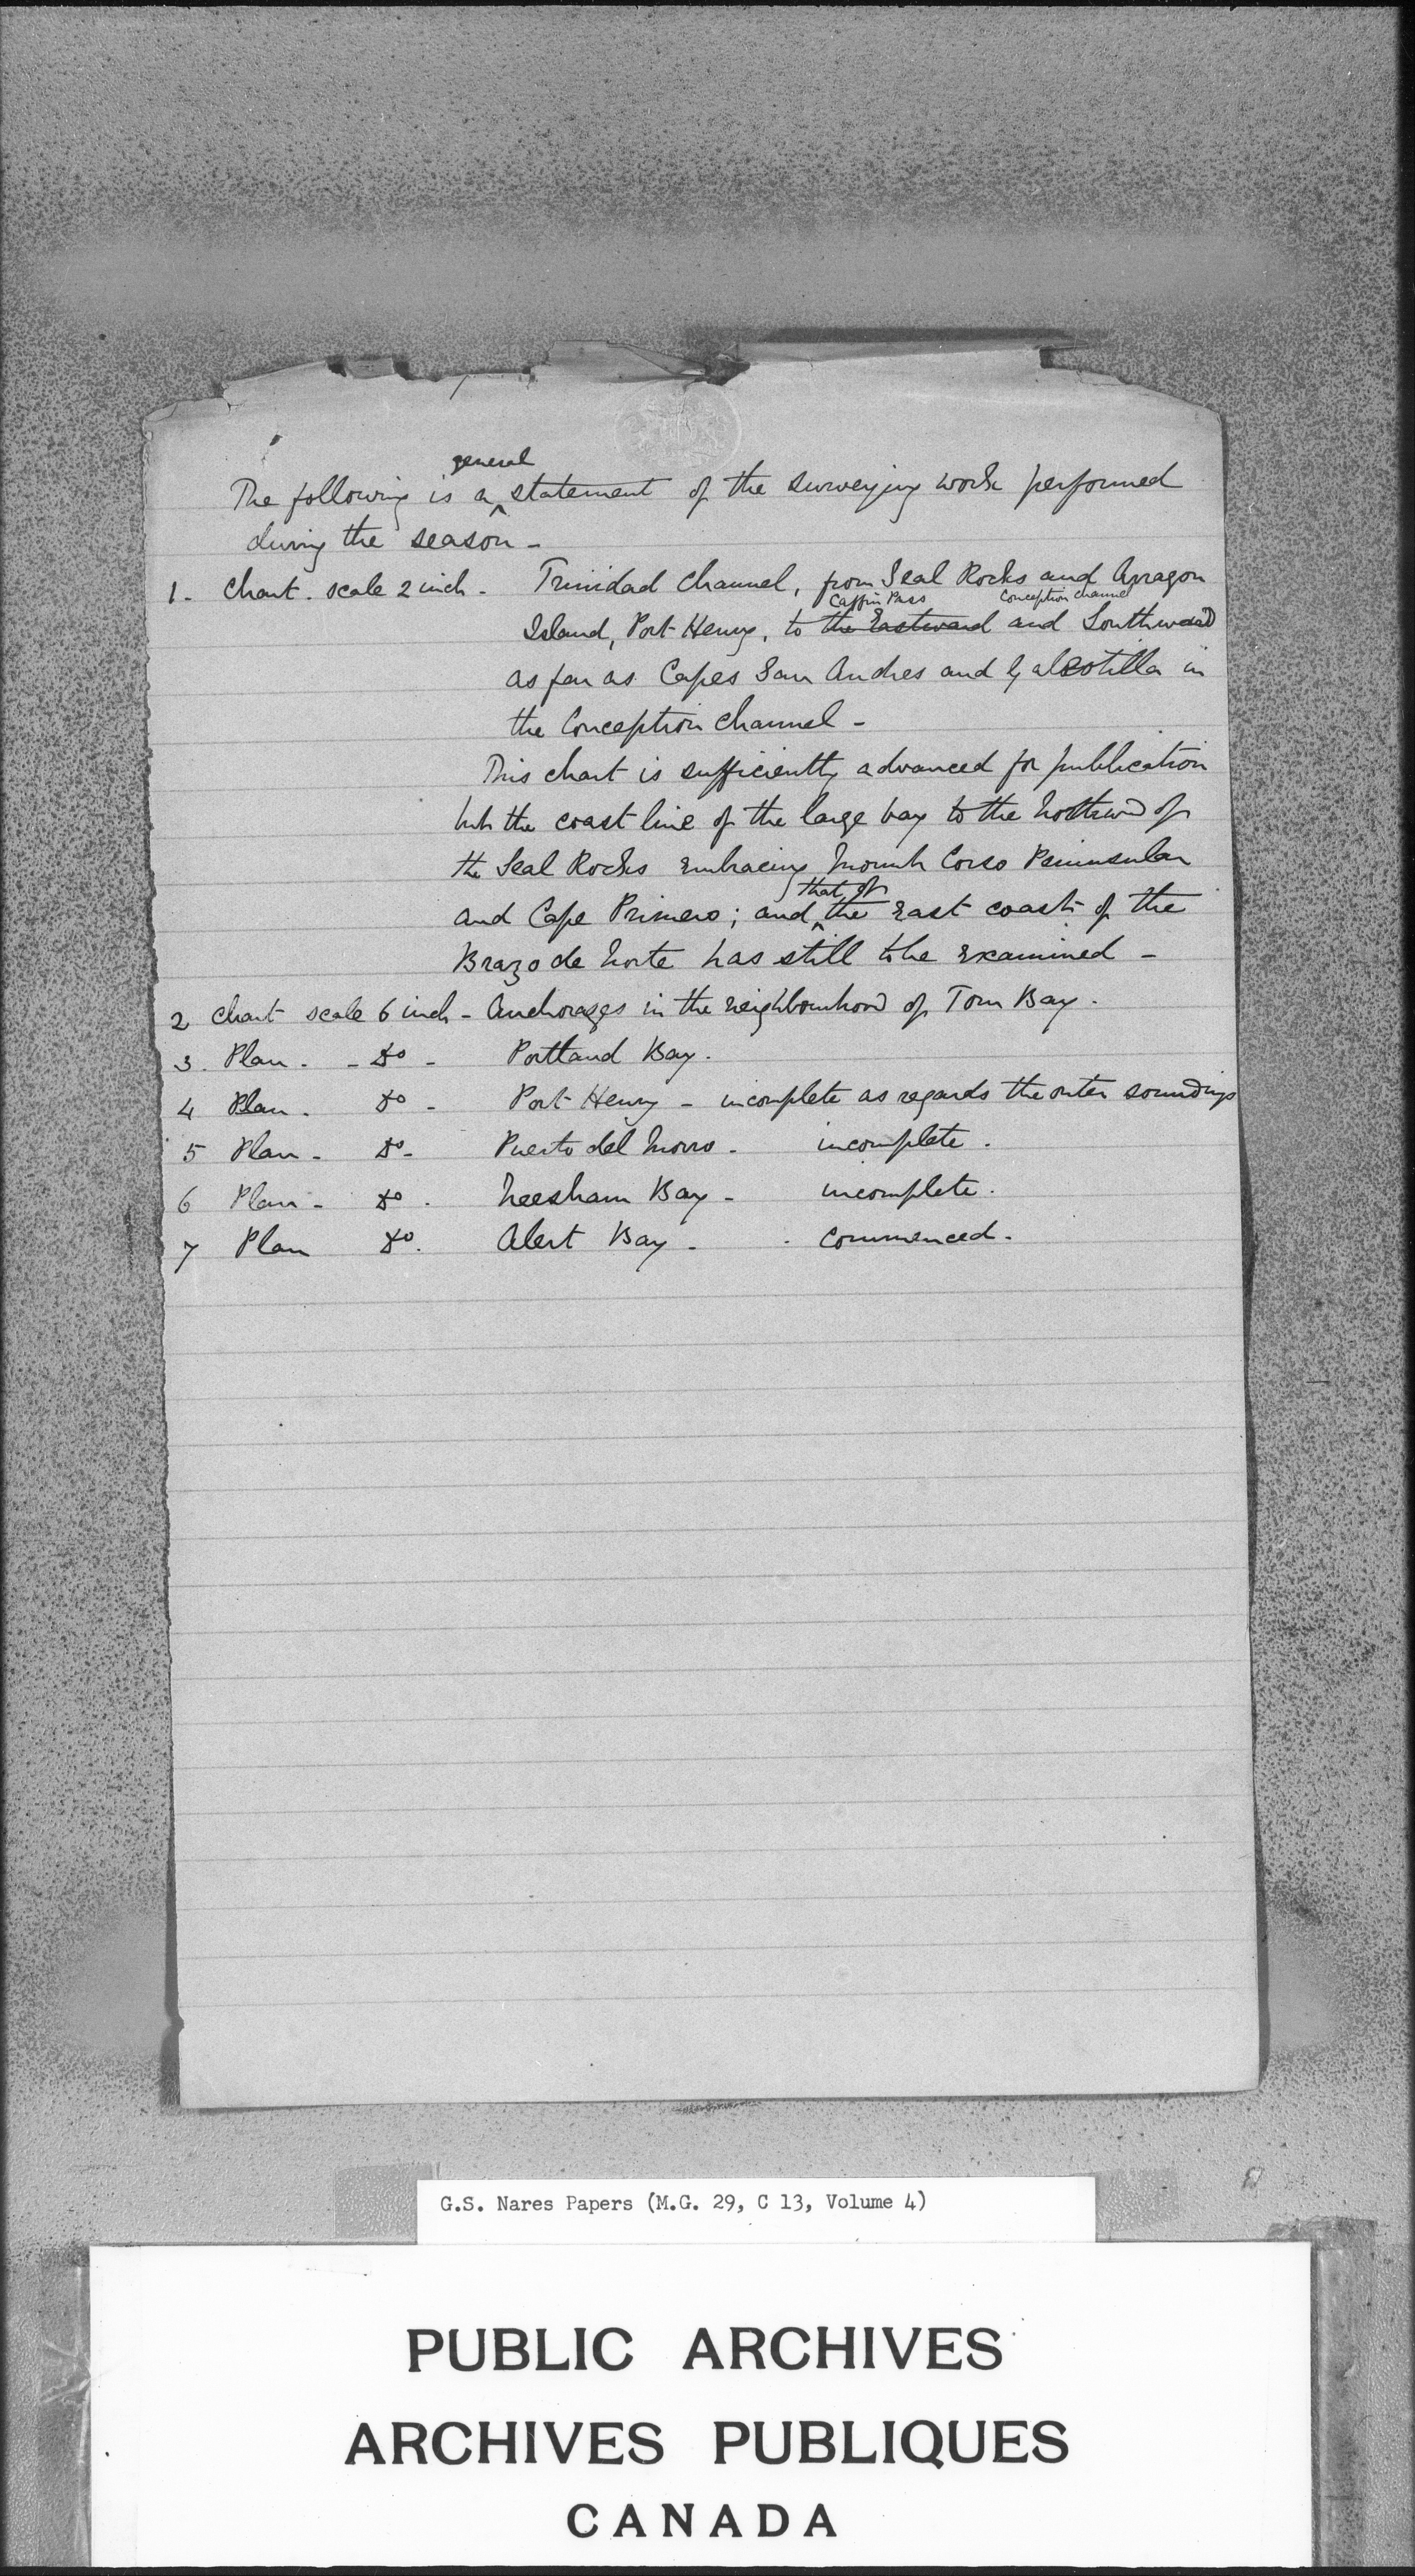 general
The following is a ^ statement of the surveying work performed
during the season -
1. Chart. scale 2 inch - Trinidad Channel, from Seal Rocks and Arragon
Caffin Pass Conception channel
Island, Port Henry, to the Eastward and Southward
as far as Capes San Andres and Galeotilla in
the Conception Channel -
This chart is sufficiently advanced for publication
but the coast line of the large bay to the northwd of
the Seal Rocks embracing Mount Corso Peninsular
that of
and Cape Primero; and ^ the East coast of the
Brazo de Norte has still to be examined -
2 Chart scale 6 inch - Anchorages in the neighbourhood of Tom Bay.
3. Plan. - Do - Portland Bay.
4 Plan. Do - Port Henry - incomplete as regards the outer soundings
5 Plan - Do - Puerto del Morro - incomplete.
6 Plan - Do. Neesham Bay - incomplete.
7 Plan Do. Alert Bay - . Commenced.
G.S. Nares Papers (M.G. 29, C 13, Volume 4)
PUBLIC ARCHIVES
ARCHIVES PUBLIQUES
CANADA